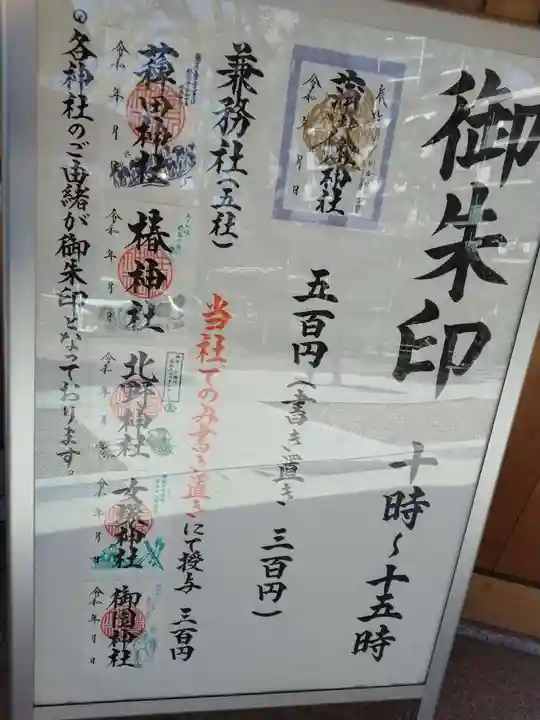 御朱印 十時~十五時
蒲田八幡神社
令和 年 月 日
五百円(書き置き 三百円)
兼務社(五社)
当社でのみ書き置きにて授与 三百円
薭田神社
令和 年 月 日
椿神社
令和 年 月 日
北野神社
令和 年 月 日
女塚神社
令和 年 月 日
御園神社
令和 年 月 日
各神社のご由緒が御朱印となっております。